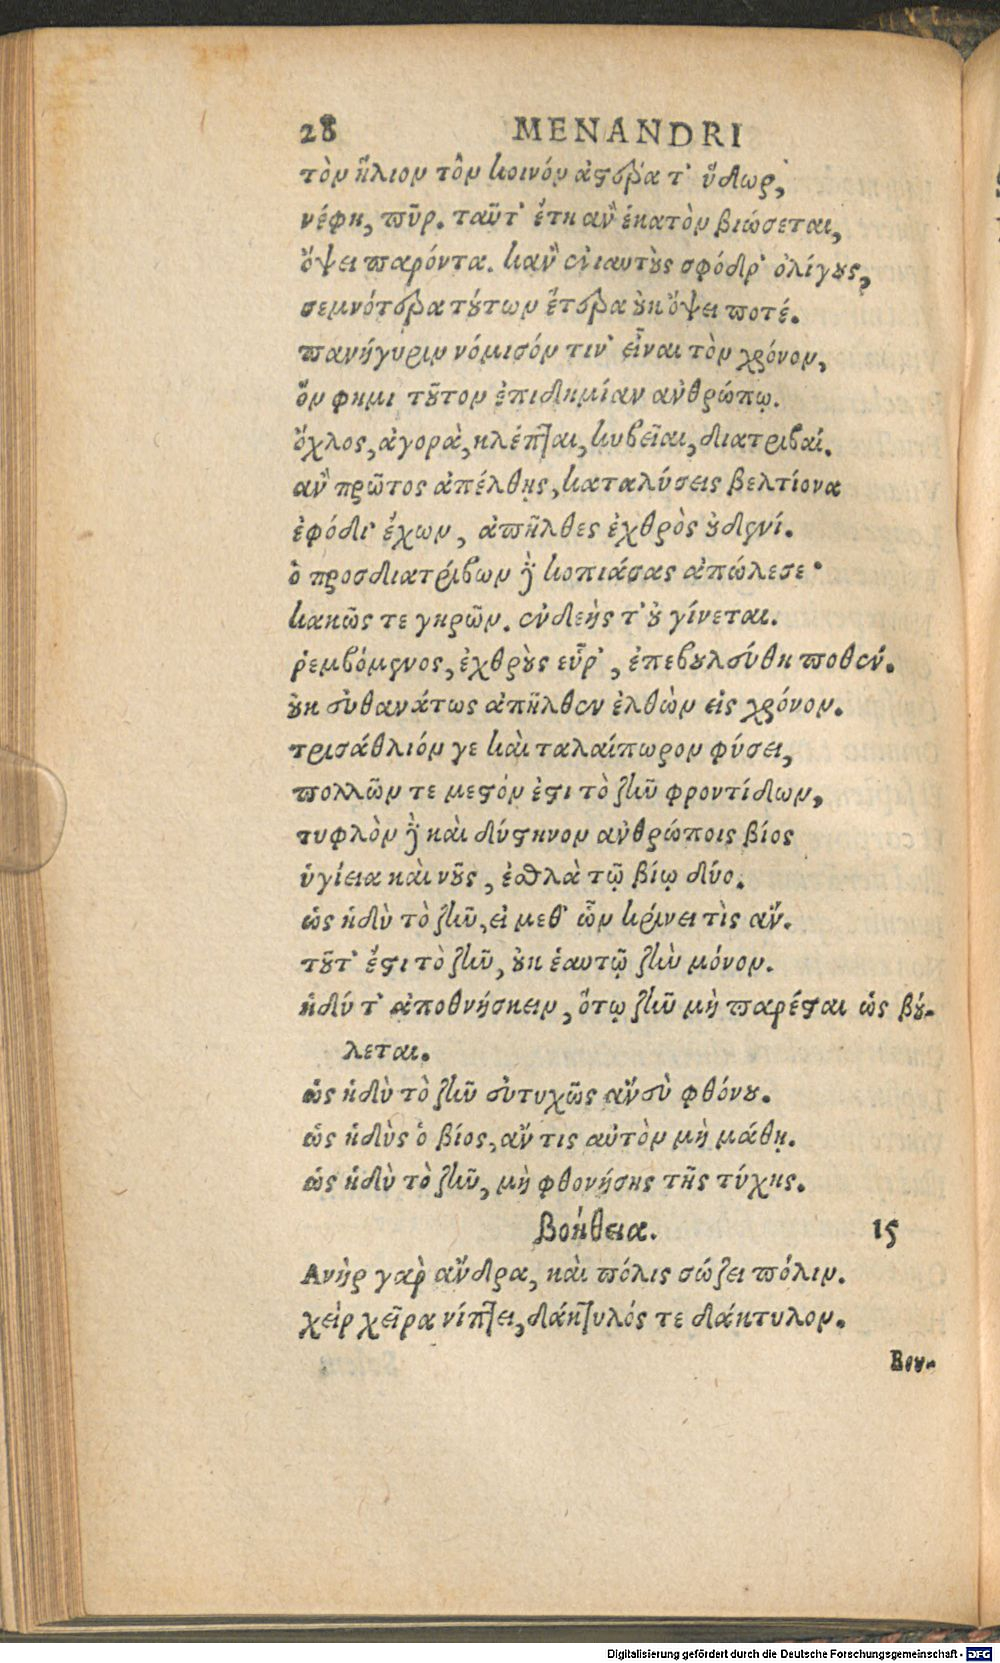 28 MENANDRI
τὸν ἥλιον τὸν κοινόν ἀστρα τ' ὕδωρ,
νέφη, πῦρ. ταῦτ' ἔτη ἂν ἑκατὸν βιώσεται,
ὄψει παρόντα. κἂν ἐνιαυτοὺς σφόδρ' ὀλίγους,
σεμνότερα τούτων ἕτερα οὐκ ὄψει ποτέ.
πανήγυριν νόμισόν τιν' εἶναι τὸν χρόνον,
ὅν φημι τοῦτον ἐπιδημίαν ἀνθρώπῳ.
ὄχλος, ἀγορὰ, κλέπται, κυβεῖαι, διατριβαί.
ἂν πρῶτος ἀπέλθῃς, καταλύσεις βελτίονα
ἐφόδι' ἔχων, ἀπῆλθες ἐχθρὸς οὐδενί.
ὁ προσδιατρίβων δὲ κοπιάσας ἀπώλεσε·
κακῶς τε γηρῶν. ἐνδεής τ' οὐ γίνεται.
ῥεμβόμενος, ἐχθροὺς εὗρ', ἐπεβουλεύθη ποθέν.
οὐκ εὐθανάτως ἀπῆλθεν ἐλθὼν εἰς χρόνον.
τρισάθλιόν γε καὶ ταλαίπωρον φύσει,
πολλῶν τε μεστόν ἐστι τὸ ζῆν φροντίδων,
τυφλὸν δὲ καὶ δύστηνον ἀνθρώποις βίος
ὑγίεια καὶ νοῦς, ἐσθλὰ τῷ βίῳ δύο.
ὡς ἡδὺ τὸ ζῆν, εἰ μεθ' ὧν κρίνει τὶς ἄν.
τοῦτ' ἔστι τὸ ζῆν, οὐκ ἑαυτῷ ζῆν μόνον.
ἡδύ τ' ἀποθνήσκειν, ὅτῳ ζῆν μὴ παρέσται ὡς βού-
λεται.
ὡς ἡδὺ τὸ ζῆν εὐτυχῶς ἄνευ φθόνου.
ὡς ἡδὺς ὁ βίος, ἄν τις αὐτὸν μὴ μάθῃ.
ὡς ἡδὺ τὸ ζῆν, μὴ φθονήσης τῆς τύχης.
βοήθεια. 15
Ανὴρ γὰρ ἄνδρα, καὶ πόλις σώζει πόλιν.
χεὶρ χεῖρα νίπτει, δάκτυλός τε δάκτυλον.
Βου-
Digitalisierung gefördert durch die Deutsche Forschungsgemeinschaft - DFG